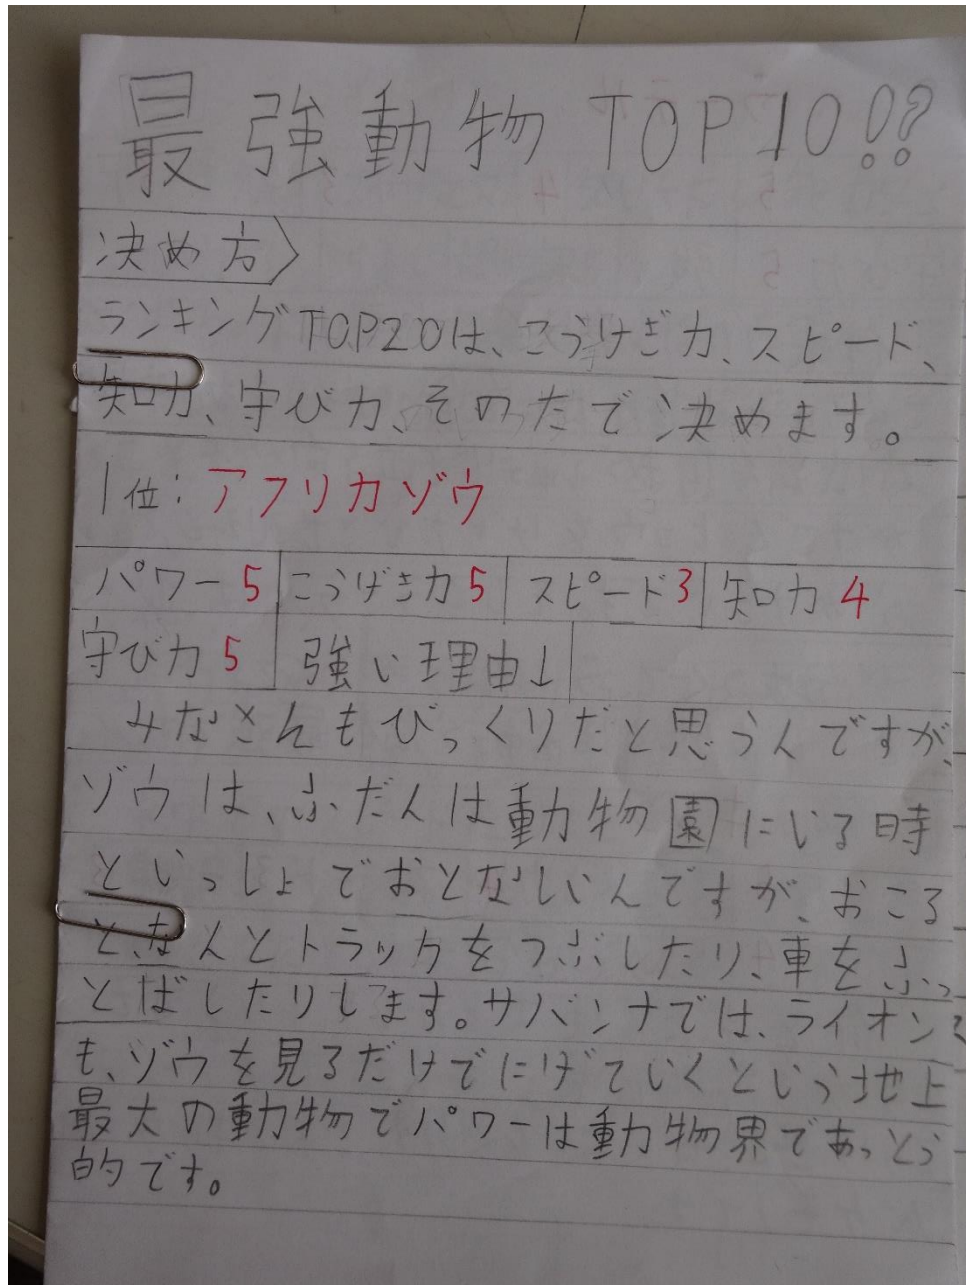 最強動物TOP10!?
決め方〉
ランキングTOP20は、こうげき力、スピード、
知力、守び力、そのたで決めます。
1位:アフリカゾウ
パワー5 こうげき力5 スピード3 知力4
守び力5 強い理由↓
みなさんもびっくりだと思うんですが、
ゾウは、ふだんは動物園にいる時
といっしょでおとなしいんですが、おころ
と、なんとトラックをつぶしたり、車をふっ
とばしたりします。サバンナでは、ライオンで
も、ゾウを見るだけでにげていくという地上
最大の動物でパワーは動物界であっとう
的です。